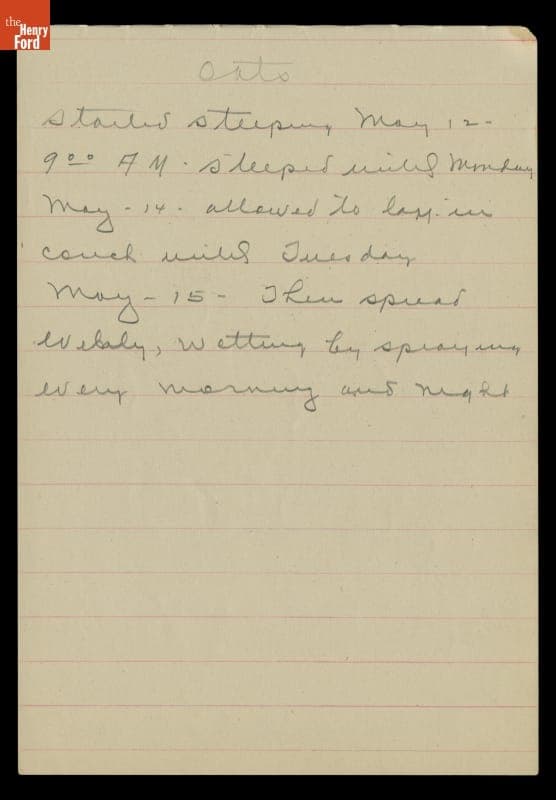 the
Henry
Ford
Oats
Started steeping May 12-
9 00 A M - steeped until Monday
May - 14 - allowed to lay in
couch until Tuesday
May - 15 - Then spread
evenly, wetting by spraying
every morning and night